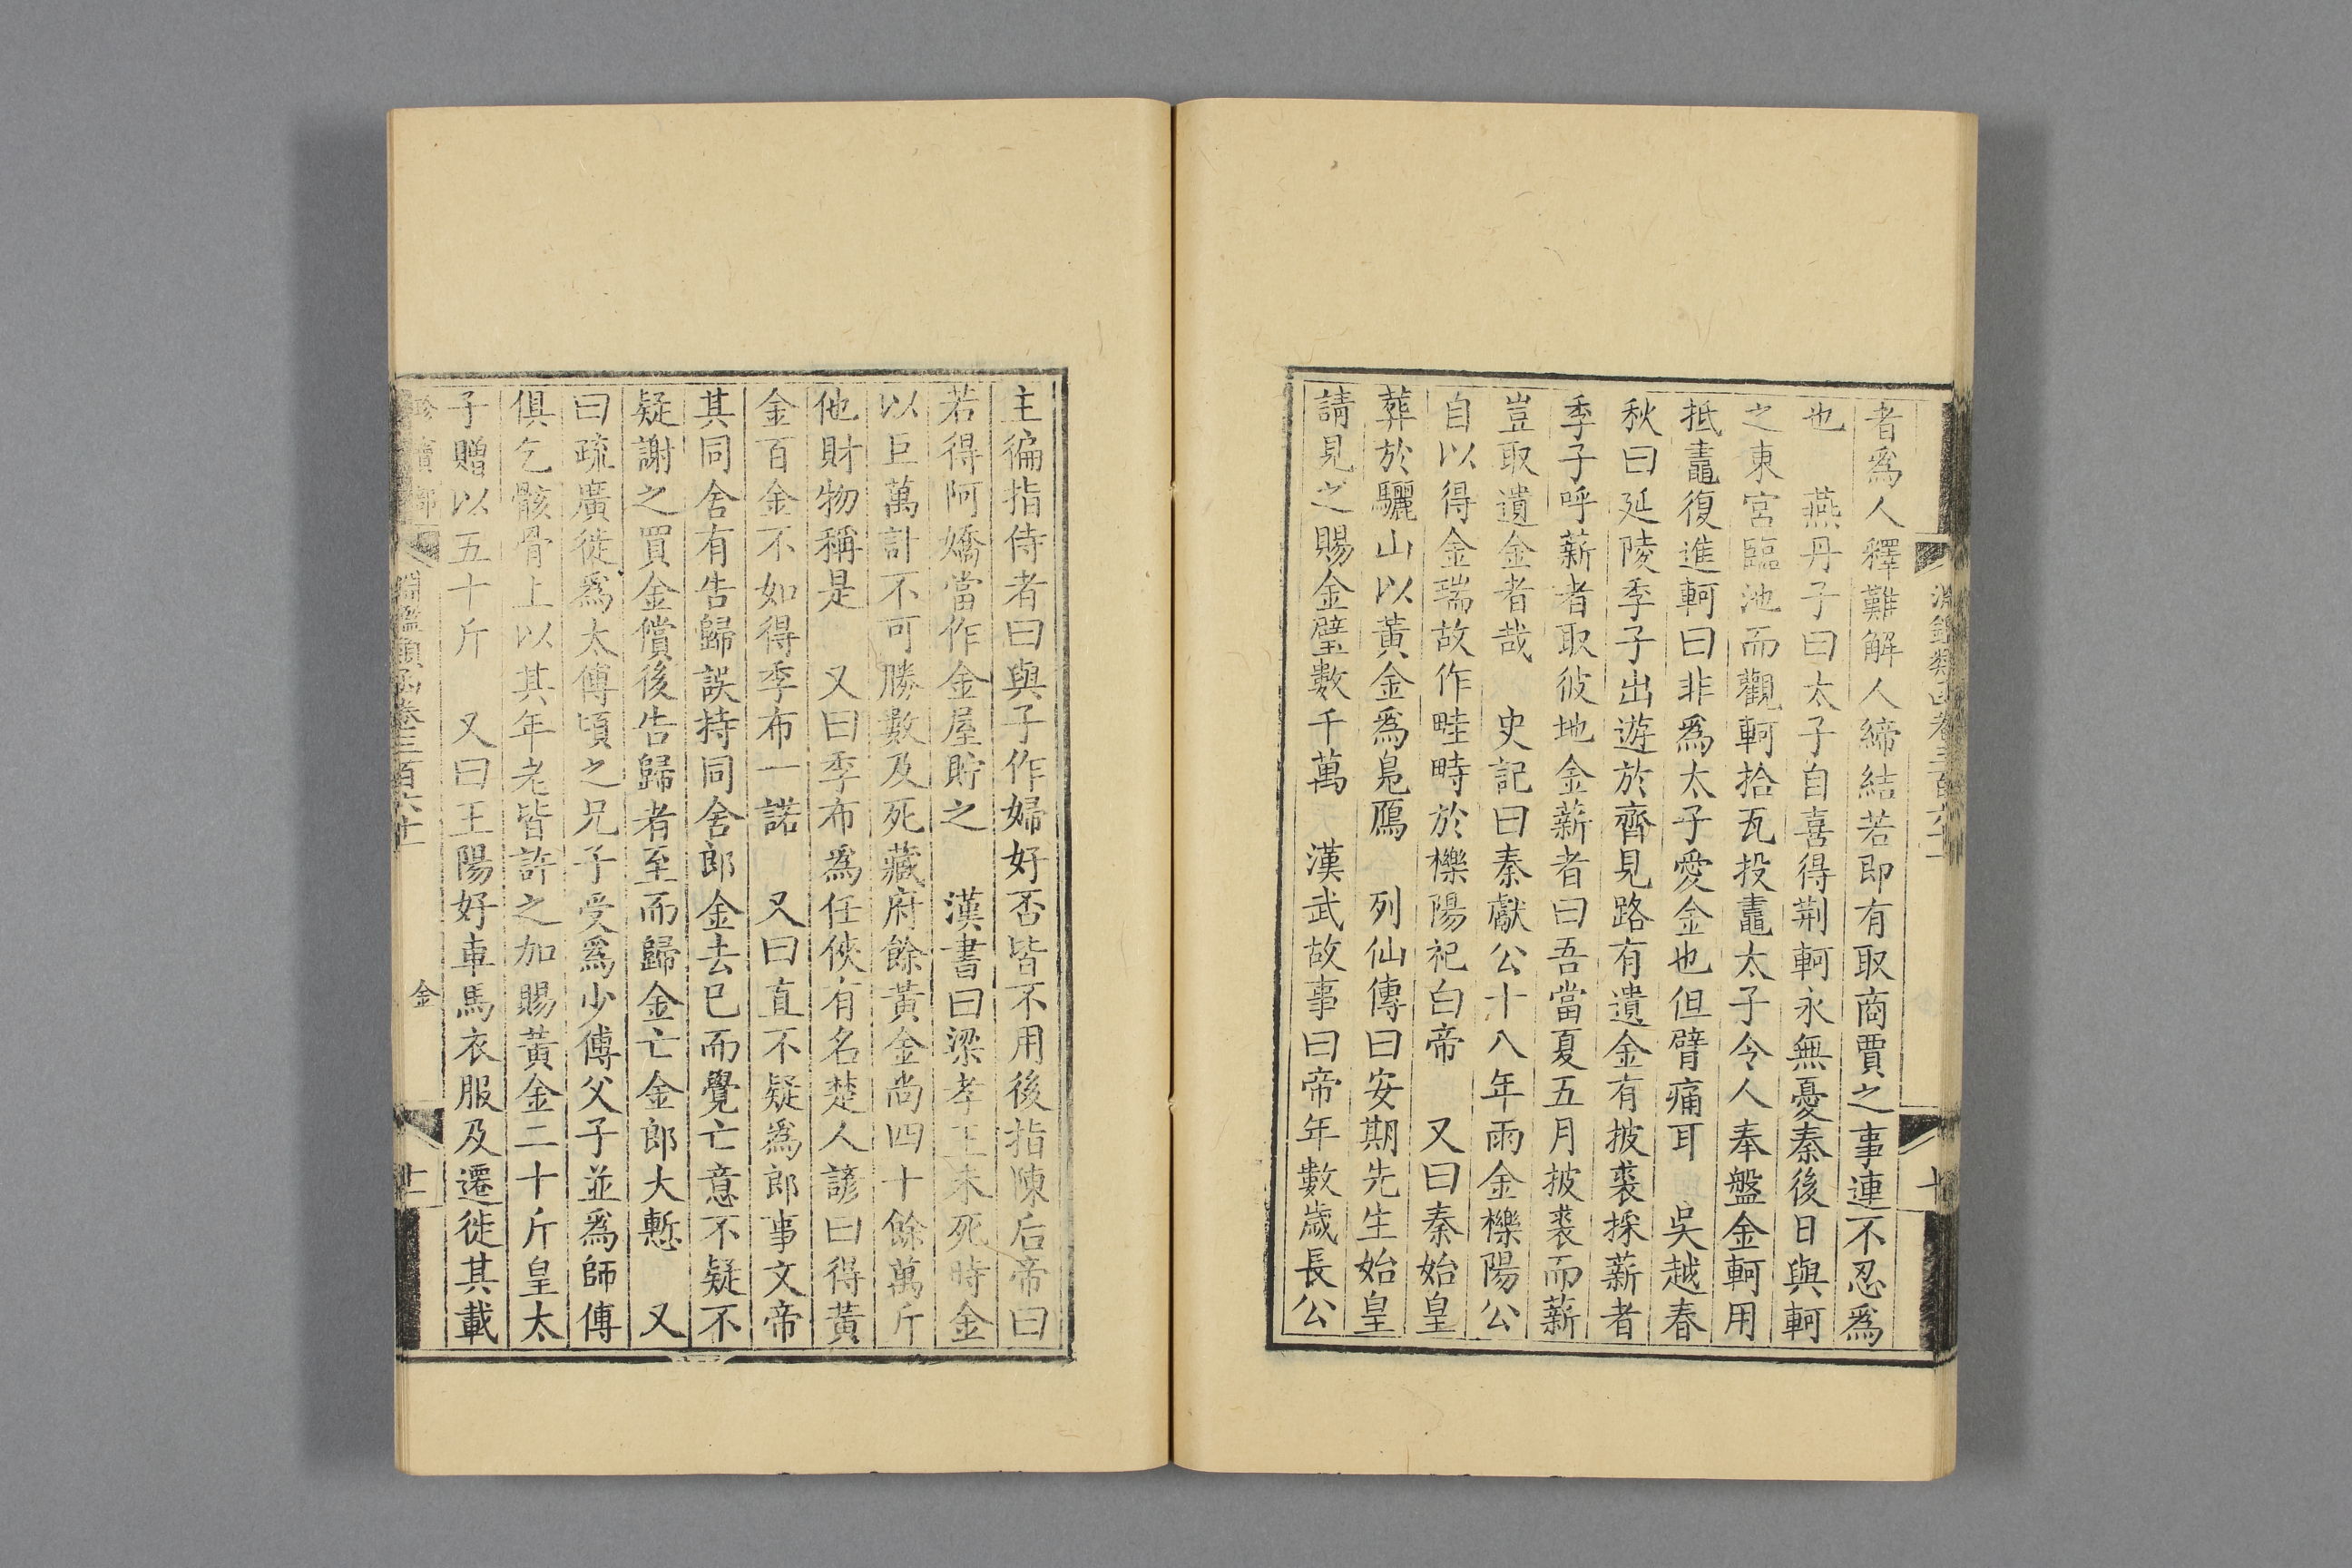 淵鑑類函卷三百六十一
十
者爲人釋難解人締結若即有取商賈之事連不忍爲
也　燕丹子曰太子自喜得荆軻永無憂秦後日與軻
之東宮臨池而觀軻拾瓦投鼃太子令人奉盤金軻用
抵鼃復進軻曰非爲太子愛金也但臂痛耳　吳越春
秋曰延陵季子出遊於齊見路有遺金有披裘採薪者
季子呼薪者取彼地金薪者曰吾當夏五月披裘而薪
豈取遺金者哉　史記曰秦獻公十八年雨金櫟陽公
自以得金瑞故作畦畤於櫟陽祀白帝　又曰秦始皇
葬於驪山以黃金爲鳧鴈　列仙傳曰安期先生始皇
請見之賜金璧數千萬　漢武故事曰帝年數歲長公
主徧指侍者曰與子作婦好否皆不用後指陳后帝曰
若得阿嬌當作金屋貯之　漢書曰梁孝王未死時金
以巨萬計不可勝數及死藏府餘黃金尚四十餘萬斤
他財物稱是　又曰季布爲任俠有名楚人諺曰得黃
金百金不如得季布一諾　又曰直不疑爲郎事文帝
其同舍有告歸誤持同舍郎金去已而覺亡意不疑不
疑謝之買金償後告歸者至而歸金亡金郎大慙　又
曰疏廣徙爲太傅頃之兄子受爲少傅父子並爲師傅
俱乞骸骨上以其年老皆許之加賜黃金二十斤皇太
子贈以五十斤　又曰王陽好車馬衣服及遷徙其載
珍寶部
淵鑑類函卷三百六十一
金
十一